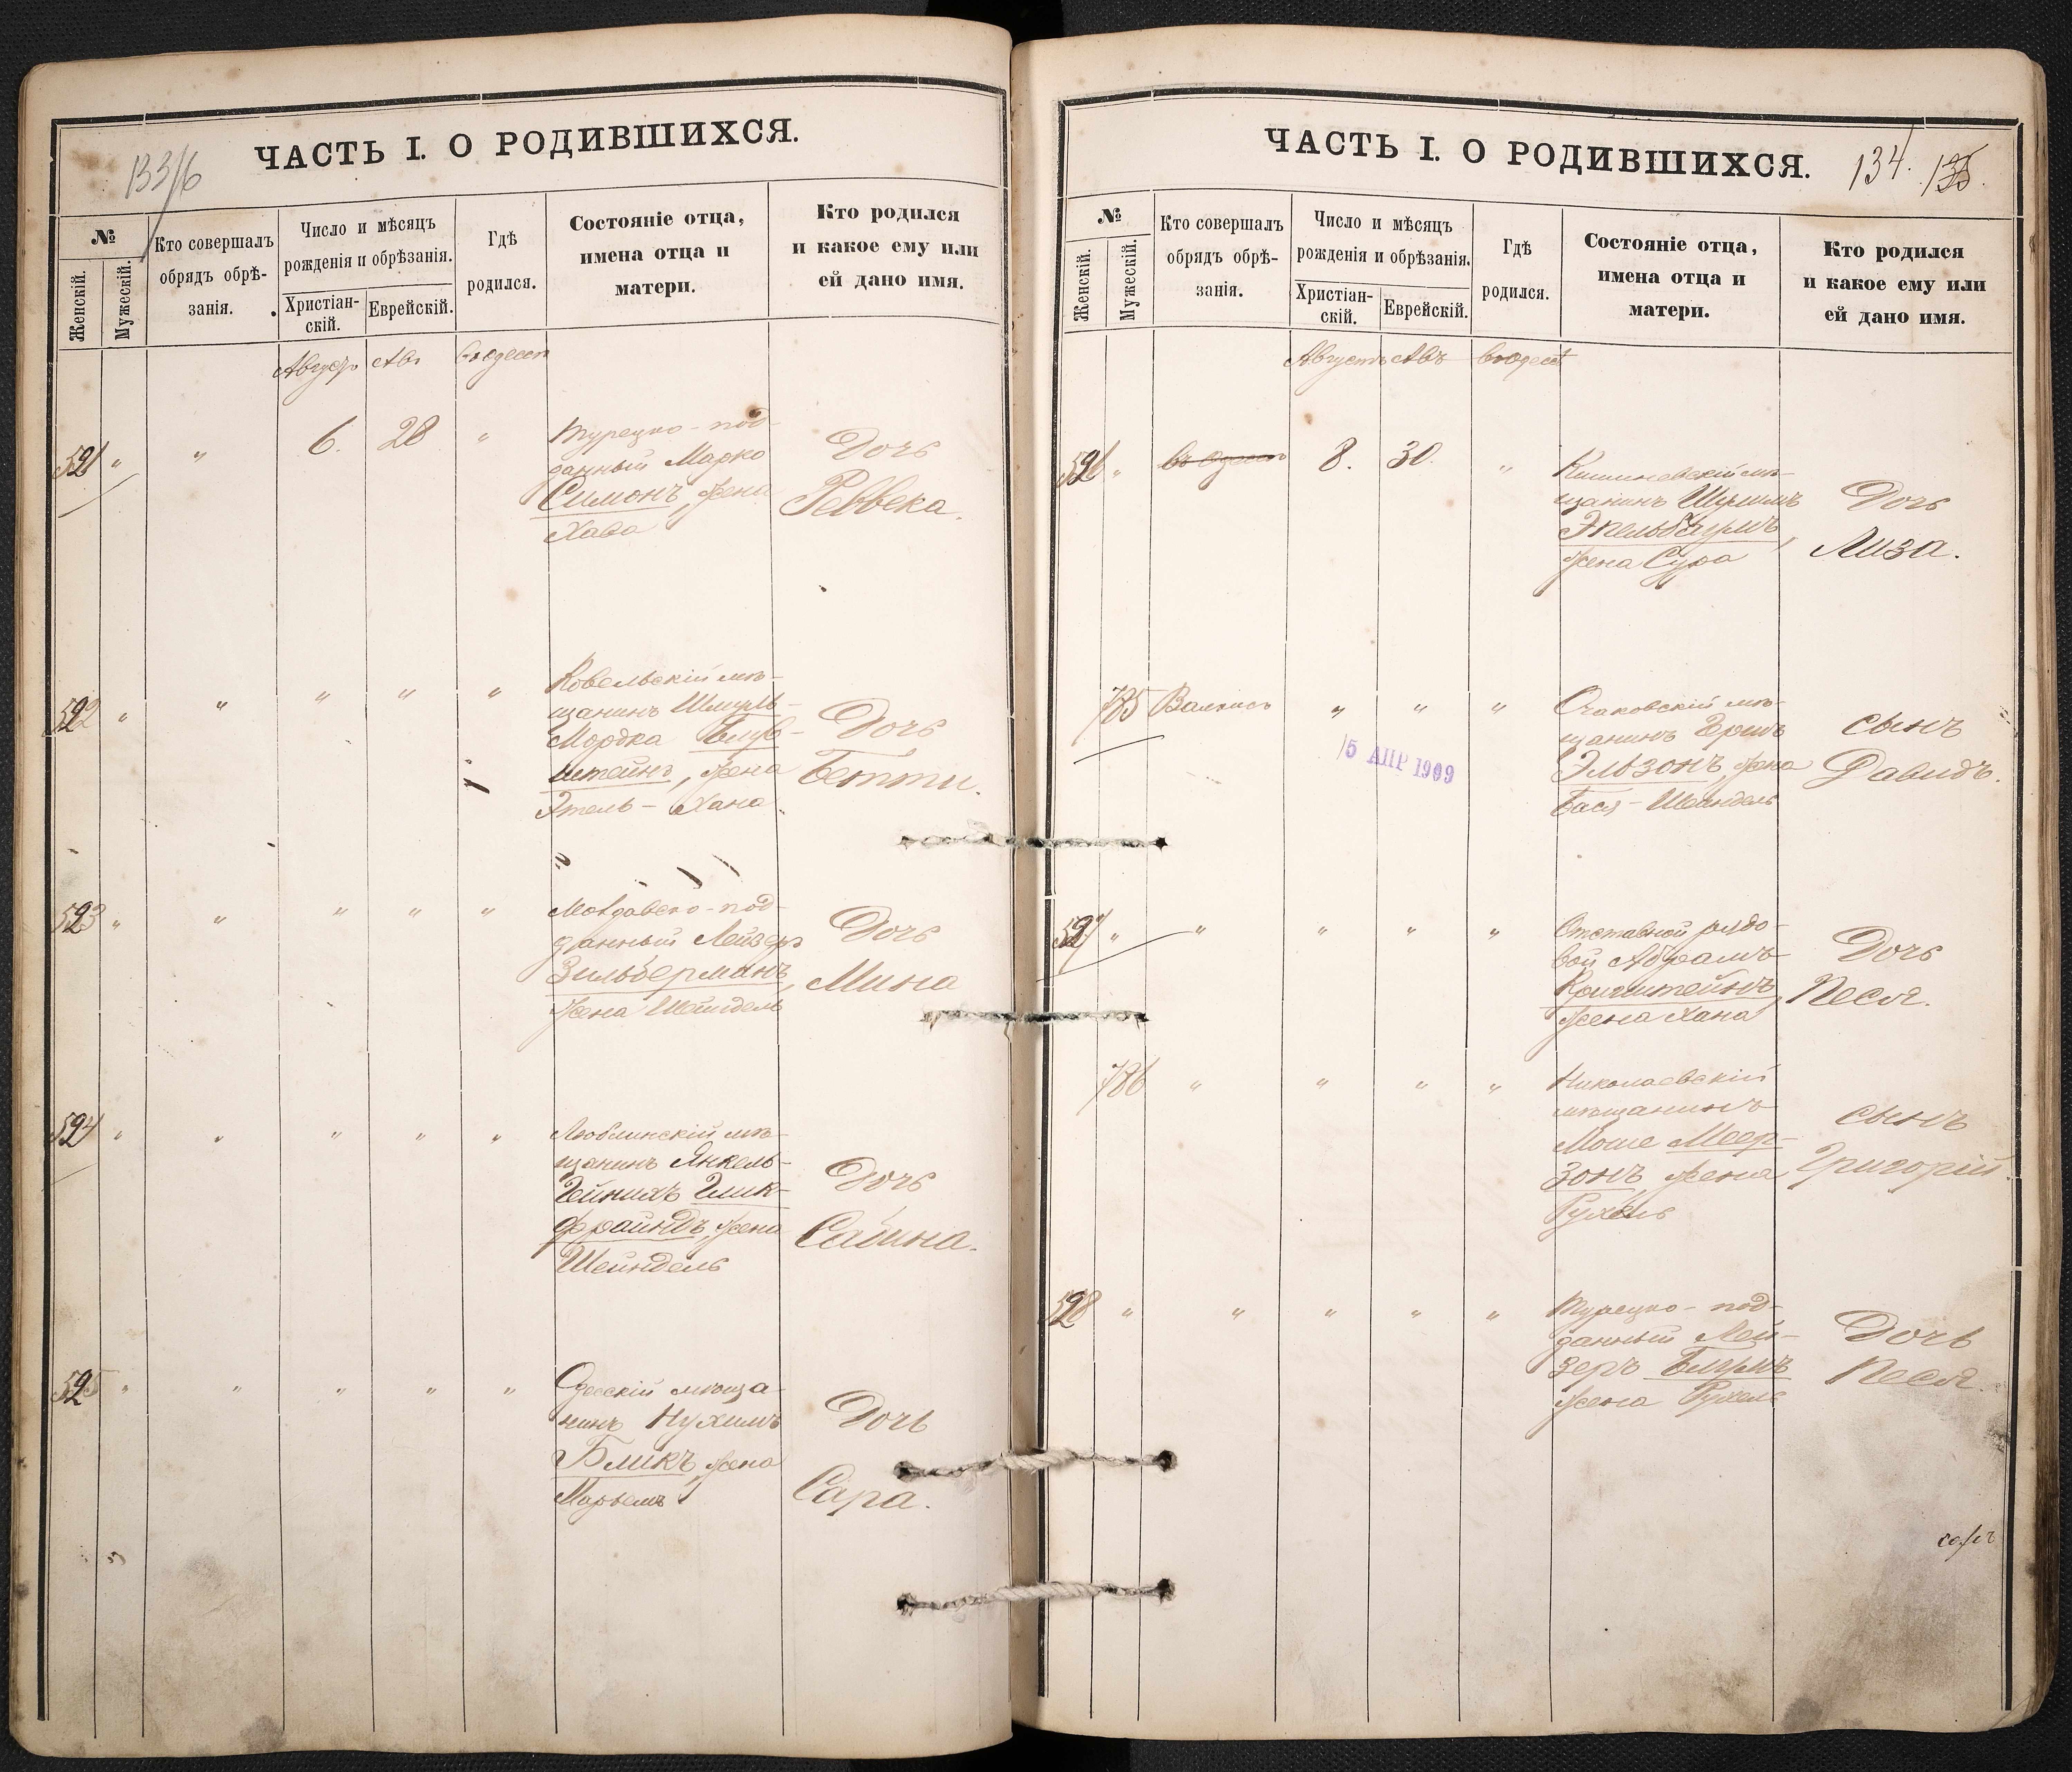 133/6
ЧАСТЬ I. О РОДИВШИХСЯ.
№
Женскій.
Мужескій.
Кто совершалъ
обрядъ обрѣ-
занія.
Число и мѣсяцъ
рожденія и обрѣзанія.
Христіан-
скій.
Еврейскій.
Гдѣ
родился.
Состояніе отца,
имена отца и
матери.
Кто родился
и какое ему или
ей дано имя.
Августъ Авъ въ Одессѣ
521 " " 6. 28 "
Турецко-под-
данный Марко
Симонъ, жена
Хава
Дочь
Реввека.
522 " " " " "
Ковельскій мѣ-
щанинъ Шмуль-
Мордка Блув-
штейнъ, жена
Этель-Хана.
Дочь
Бетти.
523 " " " " "
Молдавско-под-
данный Лейзеръ
Зильберманъ,
жена Шейндель
Дочь
Мина
524 " " " " "
Люблинскій мѣ-
щанинъ Янкель-
Гейнихъ Глик-
фраиндъ, жена
Шейндель
Дочь
Сабина.
525 " " " " "
Одесскій мѣща-
нинъ Нухимъ
Бликъ, жена
Марьемъ
Дочь
Сара.
ЧАСТЬ I. О РОДИВШИХСЯ.
134. 135.
№
Женскій.
Мужескій.
Кто совершалъ
обрядъ обрѣ-
занія.
Число и мѣсяцъ
рожденія и обрѣзанія.
Христіан-
скій.
Еврейскій.
Гдѣ
родился.
Состояніе отца,
имена отца и
матери.
Кто родился
и какое ему или
ей дано имя.
Августъ Авъ въ Одессѣ
526 " въ Одессѣ 8. 30. "
Кишиневскій мѣ-
щанинъ
Эпельбаумъ,
жена Сура
Дочь
Лиза.
785 " " "
15 АПР 1909
Очаковскій мѣ-
щанинъ Гершъ
Эльзонъ жена
Бася-Шейндель
сынъ
Давидъ.
527 " " " " "
Отставной рядо-
вой Абрамъ
жена Хана
Дочь
Песя.
786 " " " "
Николаевскій
мѣщанинъ
Моше Меер-
зонъ жена
Рухель
сынъ
Григорій.
528 " " " " "
Турецко-под-
данный Лей-
зеръ Блумъ
жена Рухель
Дочь
Песя.